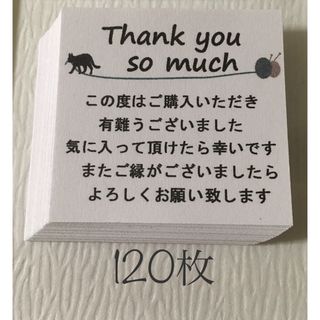 Thank you
so much
この度はご購入いただき
有難うございました
気に入って頂けたら幸いです
またご縁がございましたら
よろしくお願い致します
120枚